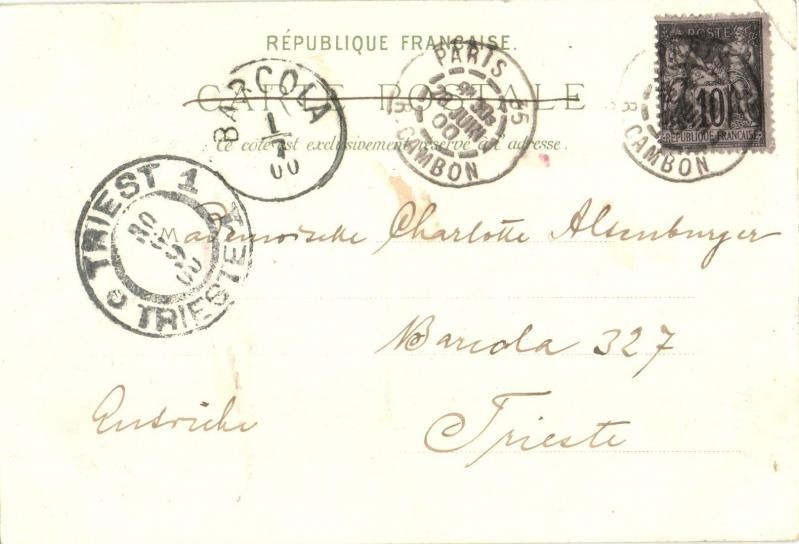 RÉPUBLIQUE FRANÇAISE.
CARTE POSTALE
Ce côté est exclusivement réservé au adresse.
BARCOLA
1
7
00
PARIS 35
28 JUIN
00
R. CAMBON
POSTES
10
RÉPUBLIQUE FRANÇAISE
CAMBON
TRIEST 1
30
00
TRIESTE
Mademoiselle Charlotte Altenburger
Barcola 327
Autriche
Trieste